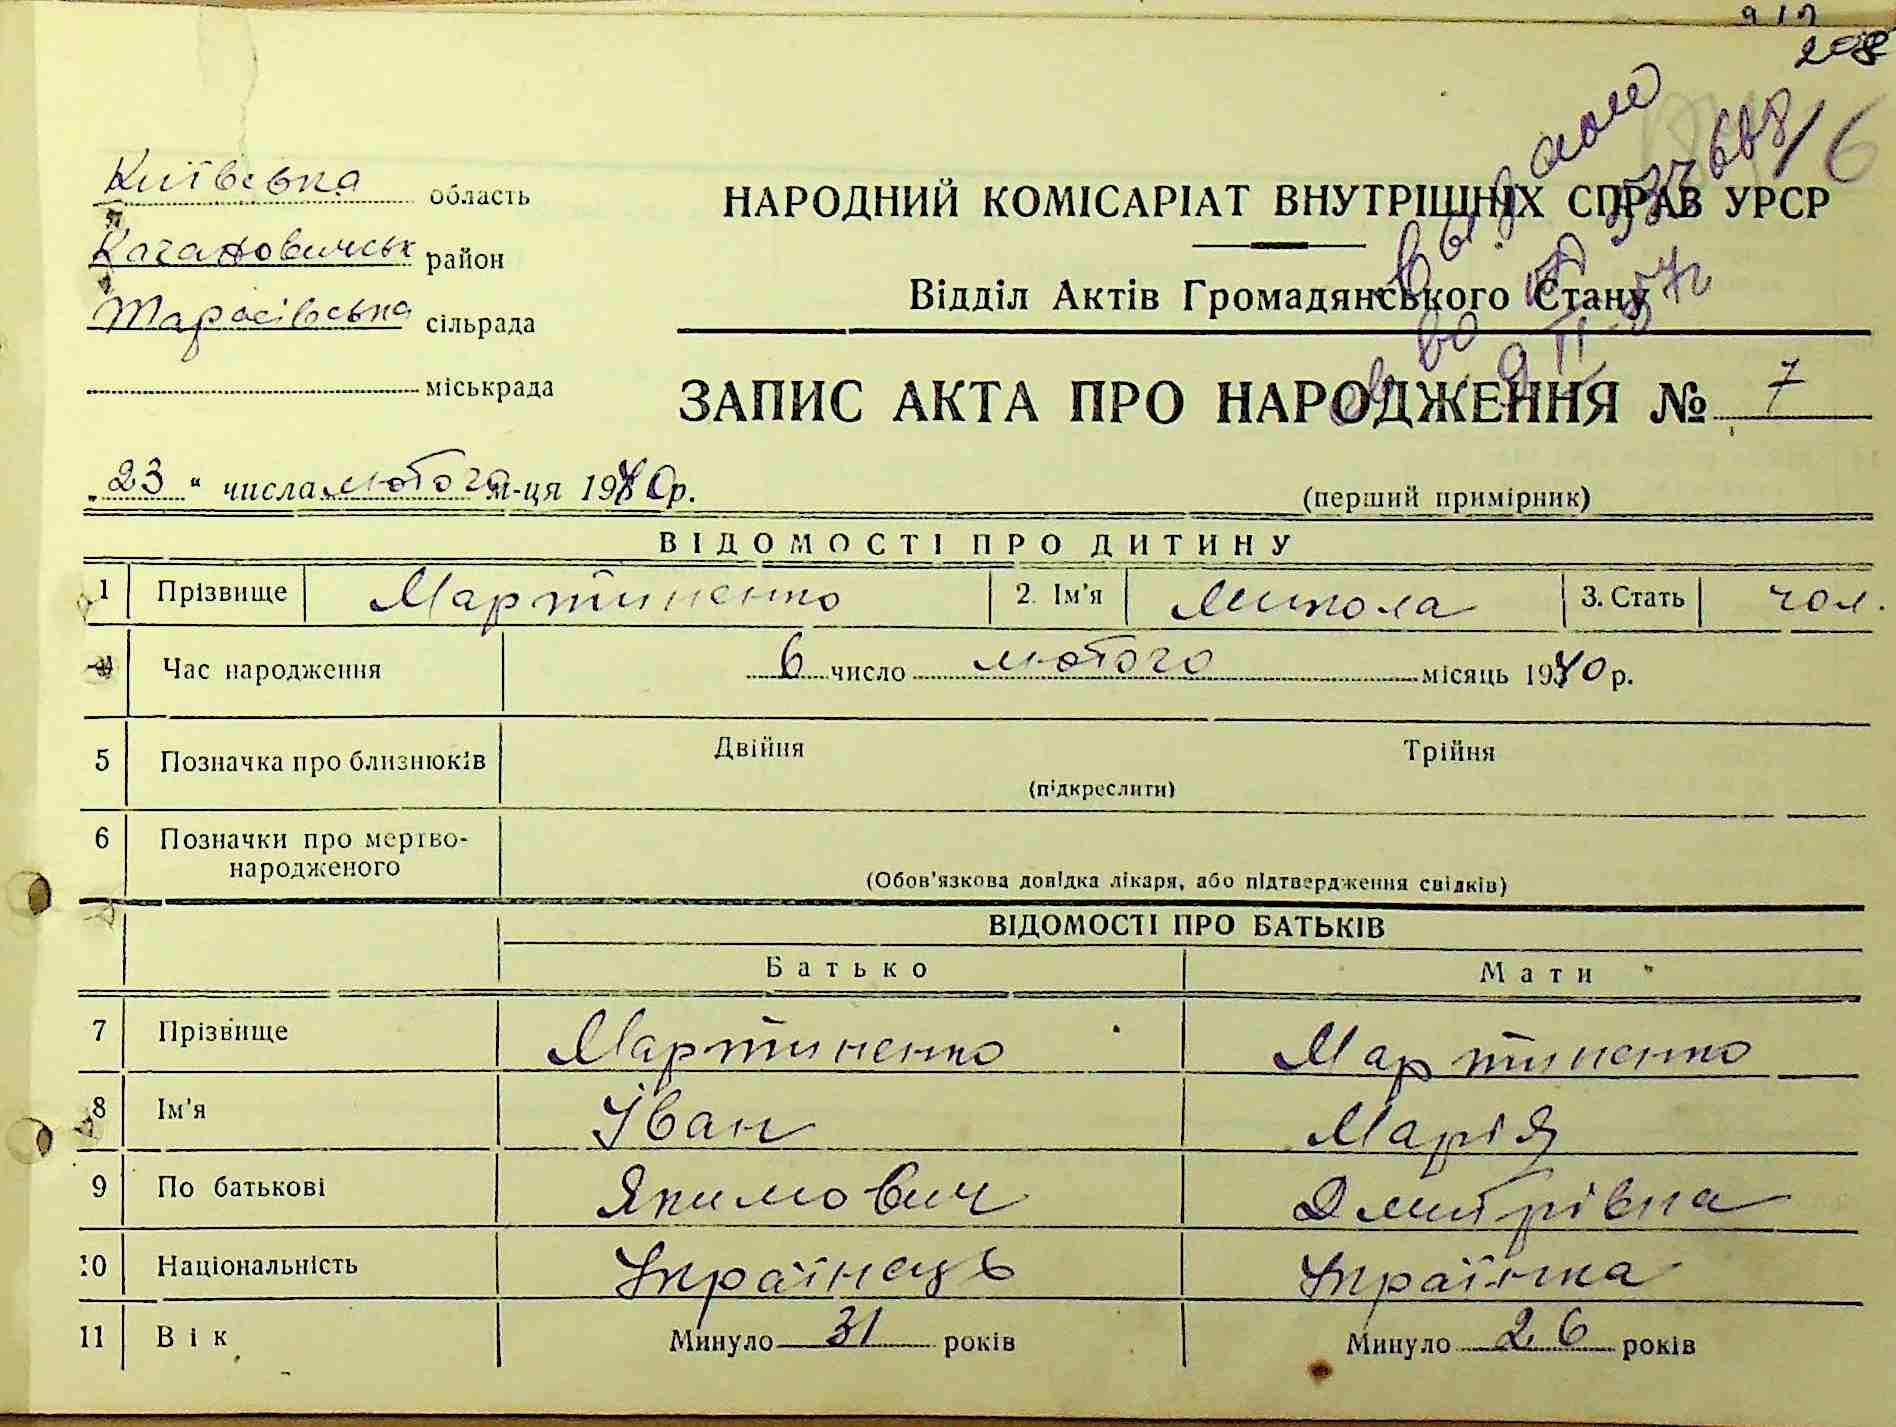 208
Київська область
Кагановичськ район
Тарасівська сільрада
міськрада
НАРОДНИЙ КОМІСАРІАТ ВНУТРІШНІХ СПРАВ УРСР
Відділ Актів Громадянського Стану
ЗАПИС АКТА ПРО НАРОДЖЕННЯ № 7
„23“ числа лютого м-ця 1940 р.
(перший примірник)
ВІДОМОСТІ ПРО ДИТИНУ
1 Прізвище Мартиненко 2. Ім'я Микола 3. Стать чол.
4 Час народження 6 число лютого місяць 1940 р.
5 Позначка про близнюків Двійня Трійня
(підкреслити)
6 Позначки про мертво-
народженого
(Обов'язкова довідка лікаря, або підтвердження свідків)
ВІДОМОСТІ ПРО БАТЬКІВ
Батько Мати
7 Прізвище Мартиненко Мартиненко
8 Ім'я Іван Марія
9 По батькові Якимович Дмитрівна
10 Національність Українець Українка
11 Вік Минуло 31 років Минуло 26 років